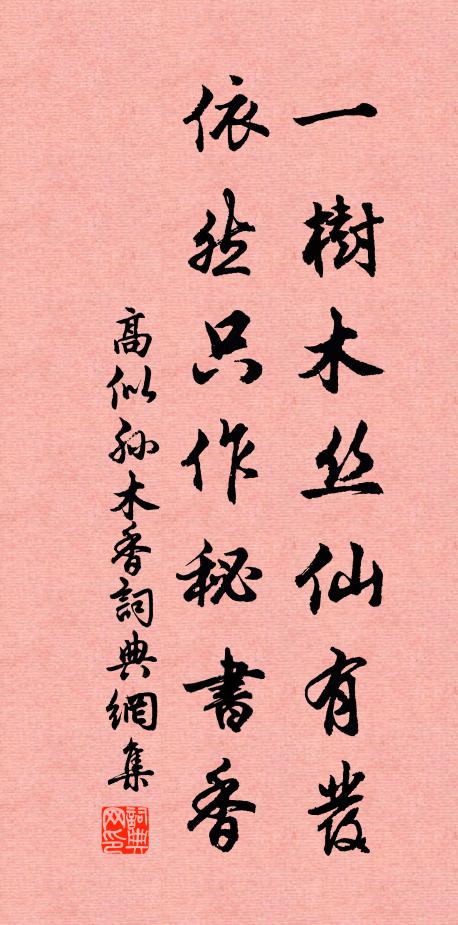 一樹木丝仙有發
依然只作秘書香
高似孙木香詞典網集
詞典网印